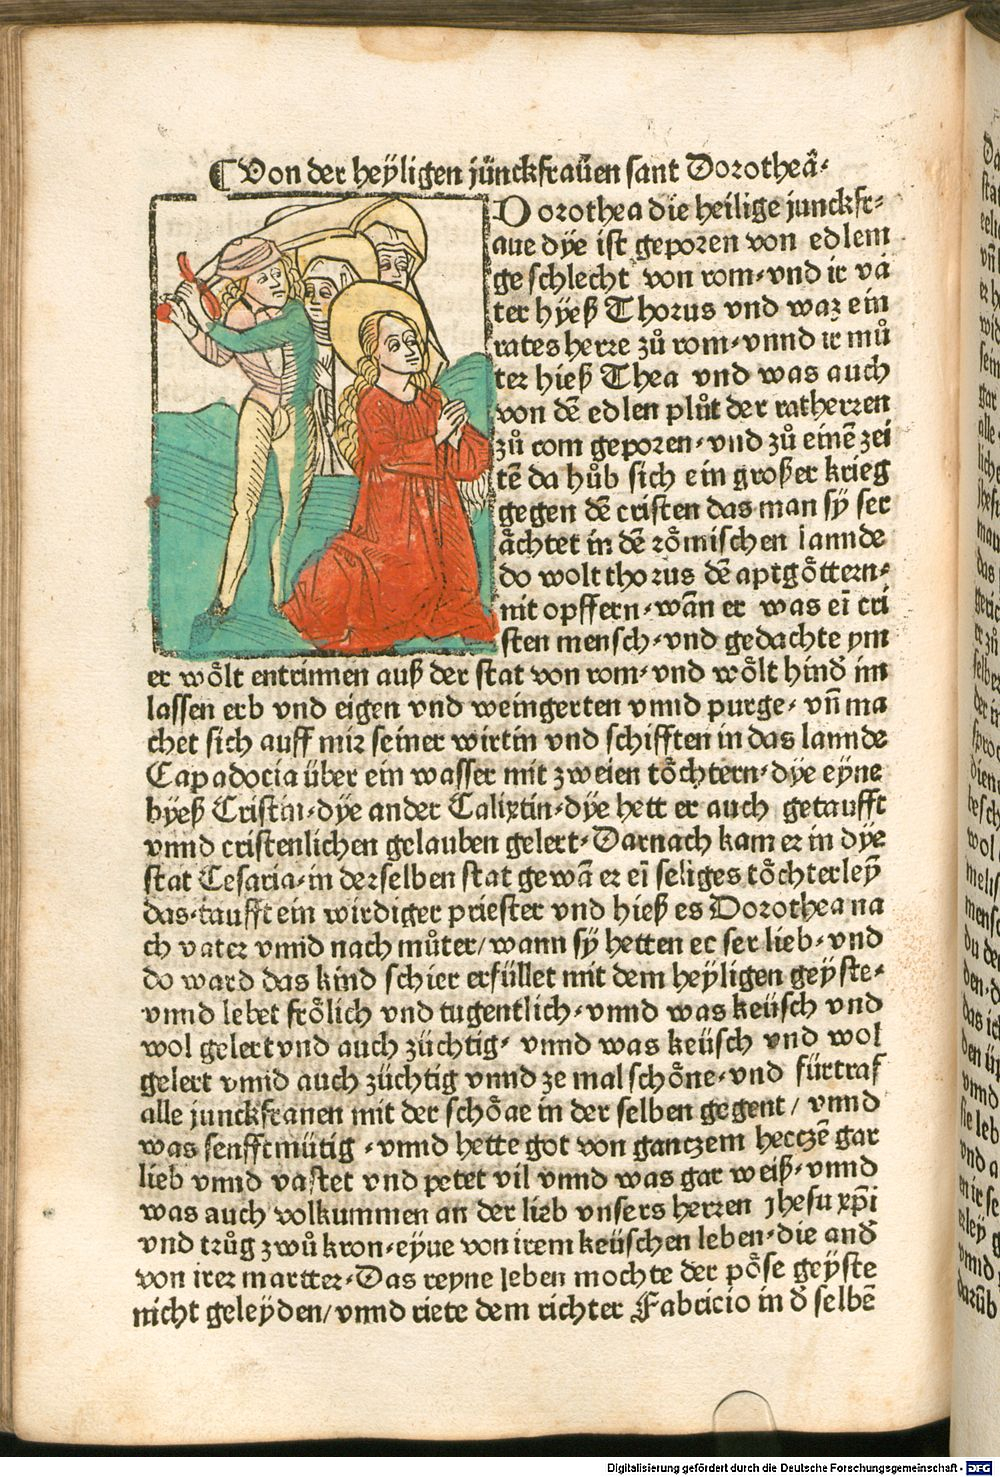 ¶ Von der heÿligen jünckfraüen sant Dorotheã·
Dorothea die heilige junckfr-
aue dÿe ist geporen von edlem
geschlecht von rom· vnd ir va
ter hÿeß Thorus vnd waz ein
rates herre zů rom· vnnd ir mů
ter hieß Thea vnd was auch
von dẽ edlen plůt der ratherren
zů rom geporen· vnd zů einẽ zei
tẽ da hůb sich ein großer krieg
gegen dẽ cristen das man sÿ ser
ächtet in dẽ römischen lannde
do wolt thorus dẽ aptgöttern·
nit opffern· wãn er was eĩ cri
sten mensch· vnd gedachte ym
er wölt entrinnen auß der stat von rom· vnd wölt hind̃ im
lassen erb vnd eigen vnd weingerten vnnd purge· vñ ma
chet sich auff mir seiner wirtin vnd schifften in das lannde
Capadocia über ein wasser mit zweien töchtern· dÿe eyne
hÿeß Cristin· dÿe ander Calixtin· dÿe hett er auch getaufft
vnnd cristenlichen gelauben gelert· Darnach kam er in dÿe
stat Cesaria· in derselben stat gewã er eĩ seliges töchterleÿ
das· taufft ein wirdiger priester vnd hieß es Dorothea na
ch vater vnnd nach můter/ wann sÿ hetten er ser lieb· vnd
do ward das kind schier erfüllet mit dem heÿligen geÿste·
vnnd lebet frölich vnd tugentlich· vnnd was keüsch vnd
wol gelert vnd auch züchtig· vnnd was keüsch vnd wol
gelert vnnd auch züchtig vnnd ze mal schöne· vnd fürtraf
alle junckfrauen mit der schöne in der selben gegent/ vnnd
was senfftmütig · vnnd hette got von ganczem herczẽ gar
lieb vnnd vastet vnd petet vil vnnd was gar weiß· vnnd
was auch volkummen an der lieb vnsers herren jhesu xp̃i
vnd trůg zwů kron· eyne von irem keüschen leben· die and̃
von irer martter· Das reyne leben mochte der pöse geÿste
nicht geleÿden/ vnnd riete dem richter Fabricio in d̃ selbẽ
Digitalisierung gefördert durch die Deutsche Forschungsgemeinschaft - DFG